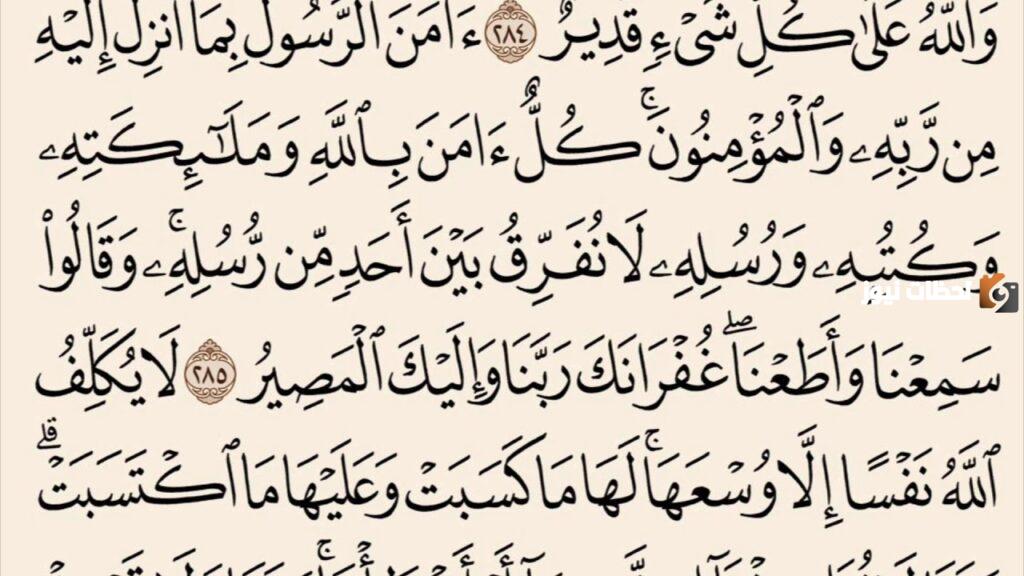 وَٱللَّهُ عَلَىٰ كُلِّ شَىْءٍ قَدِيرٌ ٢٨٤ ءَامَنَ ٱلرَّسُولُ بِمَآ أُنزِلَ إِلَيْهِ
مِن رَّبِّهِۦ وَٱلْمُؤْمِنُونَ ۚ كُلٌّ ءَامَنَ بِٱللَّهِ وَمَلَـٰٓئِكَتِهِۦ
وَكُتُبِهِۦ وَرُسُلِهِۦ لَا نُفَرِّقُ بَيْنَ أَحَدٍ مِّن رُّسُلِهِۦ ۚ وَقَالُوا۟
لحظات نيوز
سَمِعْنَا وَأَطَعْنَا ۖ غُفْرَانَكَ رَبَّنَا وَإِلَيْكَ ٱلْمَصِيرُ ٢٨٥ لَا يُكَلِّفُ
ٱللَّهُ نَفْسًا إِلَّا وُسْعَهَا ۚ لَهَا مَا كَسَبَتْ وَعَلَيْهَا مَا ٱكْتَسَبَتْ ۗ